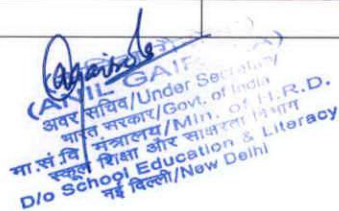 (ANIL GAIROLA)
अवर सचिव/Under Secretary
भारत सरकार/Govt. of India
मा.सं.वि. मंत्रालय/Min. of H.R.D.
स्कूल शिक्षा और साक्षरता विभाग
D/o School Education & Literacy
नई दिल्ली/New Delhi